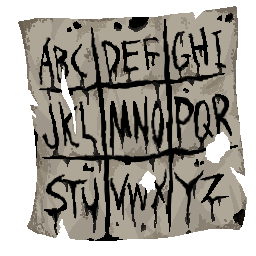 ABC DEF GHI
JKL MNO PQR
STU VWX YZ